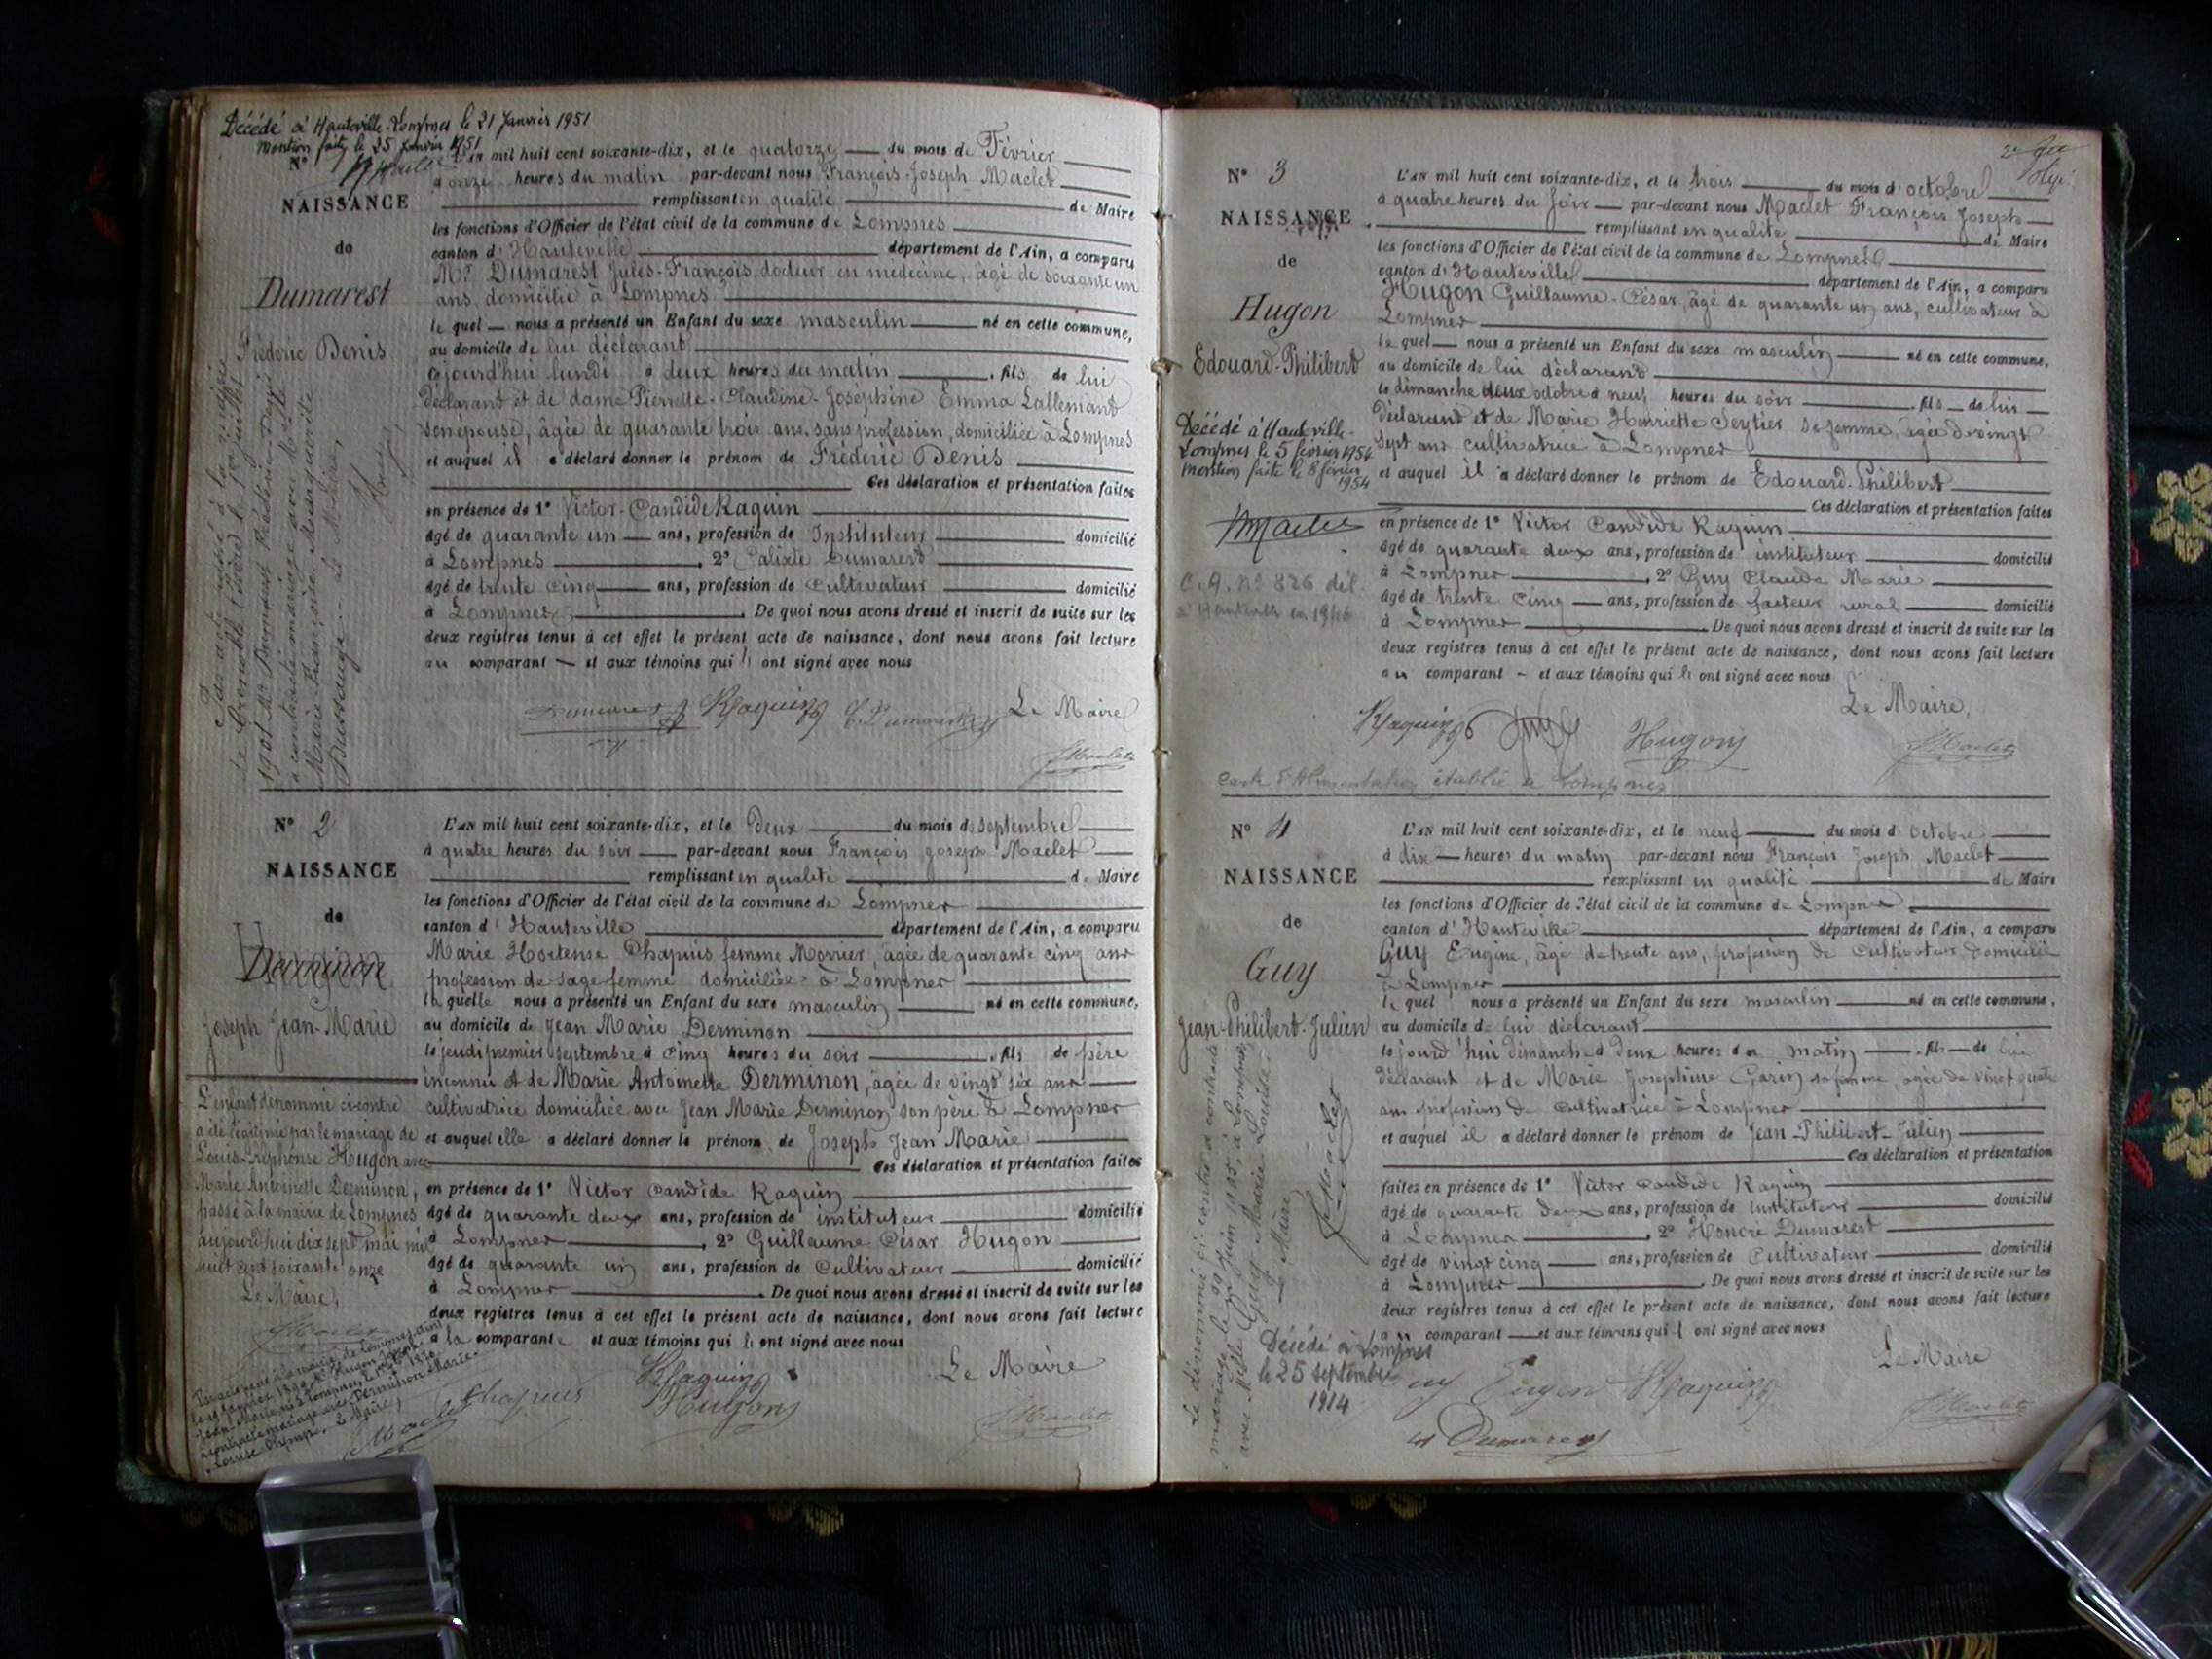 Décédé à Hauteville-Lompnes le 21 Janvier 1951
Mention faite le 25 Janvier 1951
N°
NAISSANCE
de
Dumarest
Frédéric Denis
L'an mil huit cent soixante-dix, et le quatorze du mois de Février
à onze heures du matin par-devant nous François-Joseph Maclet
remplissant en qualité de Maire
les fonctions d'Officier de l'état civil de la commune de Lompnes
canton d'Hauteville département de l'Ain, a comparu
Mr Dumarest Jules-François, docteur en médecine, âgé de soixante un
ans, domicilié à Lompnes
le quel nous a présenté un Enfant du sexe masculin né en cette commune,
au domicile de lui déclarant
cejourd'hui lundi à deux heures du matin fils de lui
déclarant et de dame Pierrette-Claudine-Joséphine Emma Lallemant
son épouse, âgée de quarante trois ans, sans profession, domiciliée à Lompnes
et auquel il a déclaré donner le prénom de Fréderic Denis
Ces déclaration et présentation faites
en présence de 1° Victor-Candide Raquin
âgé de quarante un ans, profession de Instituteur domicilié
à Lompnes , 2° Calixte Dumarest
âgé de trente cinq ans, profession de cultivateur domicilié
à Lompnes . De quoi nous avons dressé et inscrit de suite sur les
deux registres tenus à cet effet le présent acte de naissance, dont nous avons fait lecture
au comparant et aux témoins qui ont signé avec nous
Raquin Le Maire
Maclet
N° 2
NAISSANCE
de
Derminon
Hugon
Joseph Jean-Marie
L'enfant dénommé ci-contre
a été légitimé par le mariage de
Louis-Alphonse Hugon avec
Marie Antoinette Derminon,
passé à la mairie de Lompnes
aujourd'hui dix sept mai mil
huit cent soixante onze
Le Maire,
L'an mil huit cent soixante-dix, et le deux du mois de septembre
à quatre heures du soir par-devant nous François Joseph Maclet
remplissant en qualité de Maire
les fonctions d'Officier de l'état civil de la commune de Lompnes
canton d'Hauteville département de l'Ain, a comparu
Marie Hortense Chapuis femme Morrier, âgée de quarante cinq ans
profession de sage femme domiciliée à Lompnes
la quelle nous a présenté un Enfant du sexe masculin né en cette commune,
au domicile de Jean Marie Derminon
le jeudi premier septembre à cinq heures du soir fils de père
inconnu et de Marie Antoinette Derminon, âgée de vingt six ans
cultivatrice domiciliée avec Jean Marie Derminon son père à Lompnes
et auquel elle a déclaré donner le prénom de Joseph Jean Marie
Ces déclaration et présentation faites
en présence de 1° Victor Candide Raquin
âgé de quarante deux ans, profession de instituteur domicilié
à Lompnes , 2° Guillaume César Hugon
âgé de quarante un ans, profession de Cultivateur domicilié
à Lompnes . De quoi nous avons dressé et inscrit de suite sur les
deux registres tenus à cet effet le présent acte de naissance, dont nous avons fait lecture
à la comparante et aux témoins qui ont signé avec nous
Raquin Le Maire
Chapuis Hugon
Maclet
N° 3
NAISSANCE
de
Hugon
Edouard-Philibert
Décédé à Hauteville-
Lompnes le 5 février 1954
Mention faite le 8 février
1954
C. A. N° 826 dél.
à Hauteville en 1946
L'an mil huit cent soixante-dix, et le trois du mois d'octobre
à quatre heures du soir par-devant nous Maclet François Joseph
remplissant en qualité de Maire
les fonctions d'Officier de l'état civil de la commune de Lompnes
canton d'Hauteville département de l'Ain, a comparu
Hugon Guillaume-César, âgé de quarante un ans, cultivateur à
Lompnes
le quel nous a présenté un Enfant du sexe masculin né en cette commune,
au domicile de lui déclarant
le dimanche deux octobre à neuf heures du soir fils de lui
déclarant et de Marie Henriette Seytier sa femme, âgée de vingt
sept ans cultivatrice à Lompnes
et auquel il a déclaré donner le prénom de Edouard-Philibert
Ces déclaration et présentation faites
en présence de 1° Victor Candide Raquin
âgé de quarante deux ans, profession de instituteur domicilié
à Lompnes , 2° Guy Claude Marie
âgé de trente cinq ans, profession de facteur rural domicilié
à Lompnes De quoi nous avons dressé et inscrit de suite sur les
deux registres tenus à cet effet le présent acte de naissance, dont nous avons fait lecture
au comparant et aux témoins qui ont signé avec nous
Le Maire,
Raquin Guy Hugon Maclet
Carte d'Alimentation établie à Lompnes
N° 4
NAISSANCE
de
Guy
Jean-Philibert-Julien
L'an mil huit cent soixante-dix, et le neuf du mois d'octobre
à dix heures du matin par-devant nous François Joseph Maclet
remplissant en qualité de Maire
les fonctions d'Officier de l'état civil de la commune de Lompnes
canton d'Hauteville département de l'Ain, a comparu
Guy Eugène, âgé de trente ans, profession de cultivateur domicilié
à Lompnes
le quel nous a présenté un Enfant du sexe masculin né en cette commune,
au domicile de lui déclarant
le jourd'hui dimanche à deux heures du matin fils de lui
déclarant et de Marie Josephine Garin sa femme agée de vingt quatre
ans profession de cultivatrice à Lompnes
et auquel il a déclaré donner le prénom de Jean-Philibert-Julien
Ces déclaration et présentation
faites en présence de 1° Victor Candide Raquin
âgé de quarante deux ans, profession de Instituteur domicilié
à Lompnes , 2° Honoré Dumarest
âgé de vingt cinq ans, profession de Cultivateur domicilié
à Lompnes . De quoi nous avons dressé et inscrit de suite sur les
deux registres tenus à cet effet le présent acte de naissance, dont nous avons fait lecture
au comparant et aux témoins qui ont signé avec nous
Décédé à Lompnes
le 25 septembre
1914
Le Maire
Eugène Raquin
Dumarest
Maclet